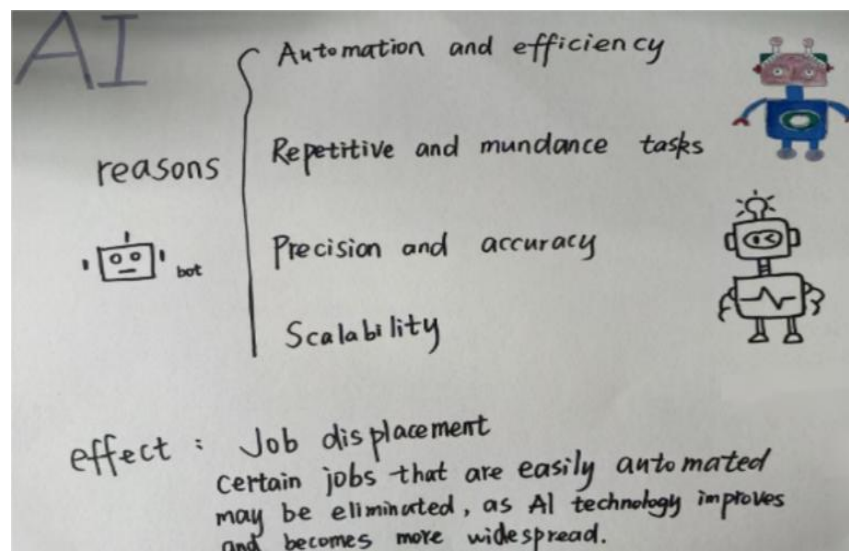 AI
Automation and efficiency
reasons
Repetitive and mundance tasks
bot
Precision and accuracy
Scalability
effect : Job displacement
certain jobs that are easily automated
may be eliminated, as AI technology improves
and becomes more widespread.